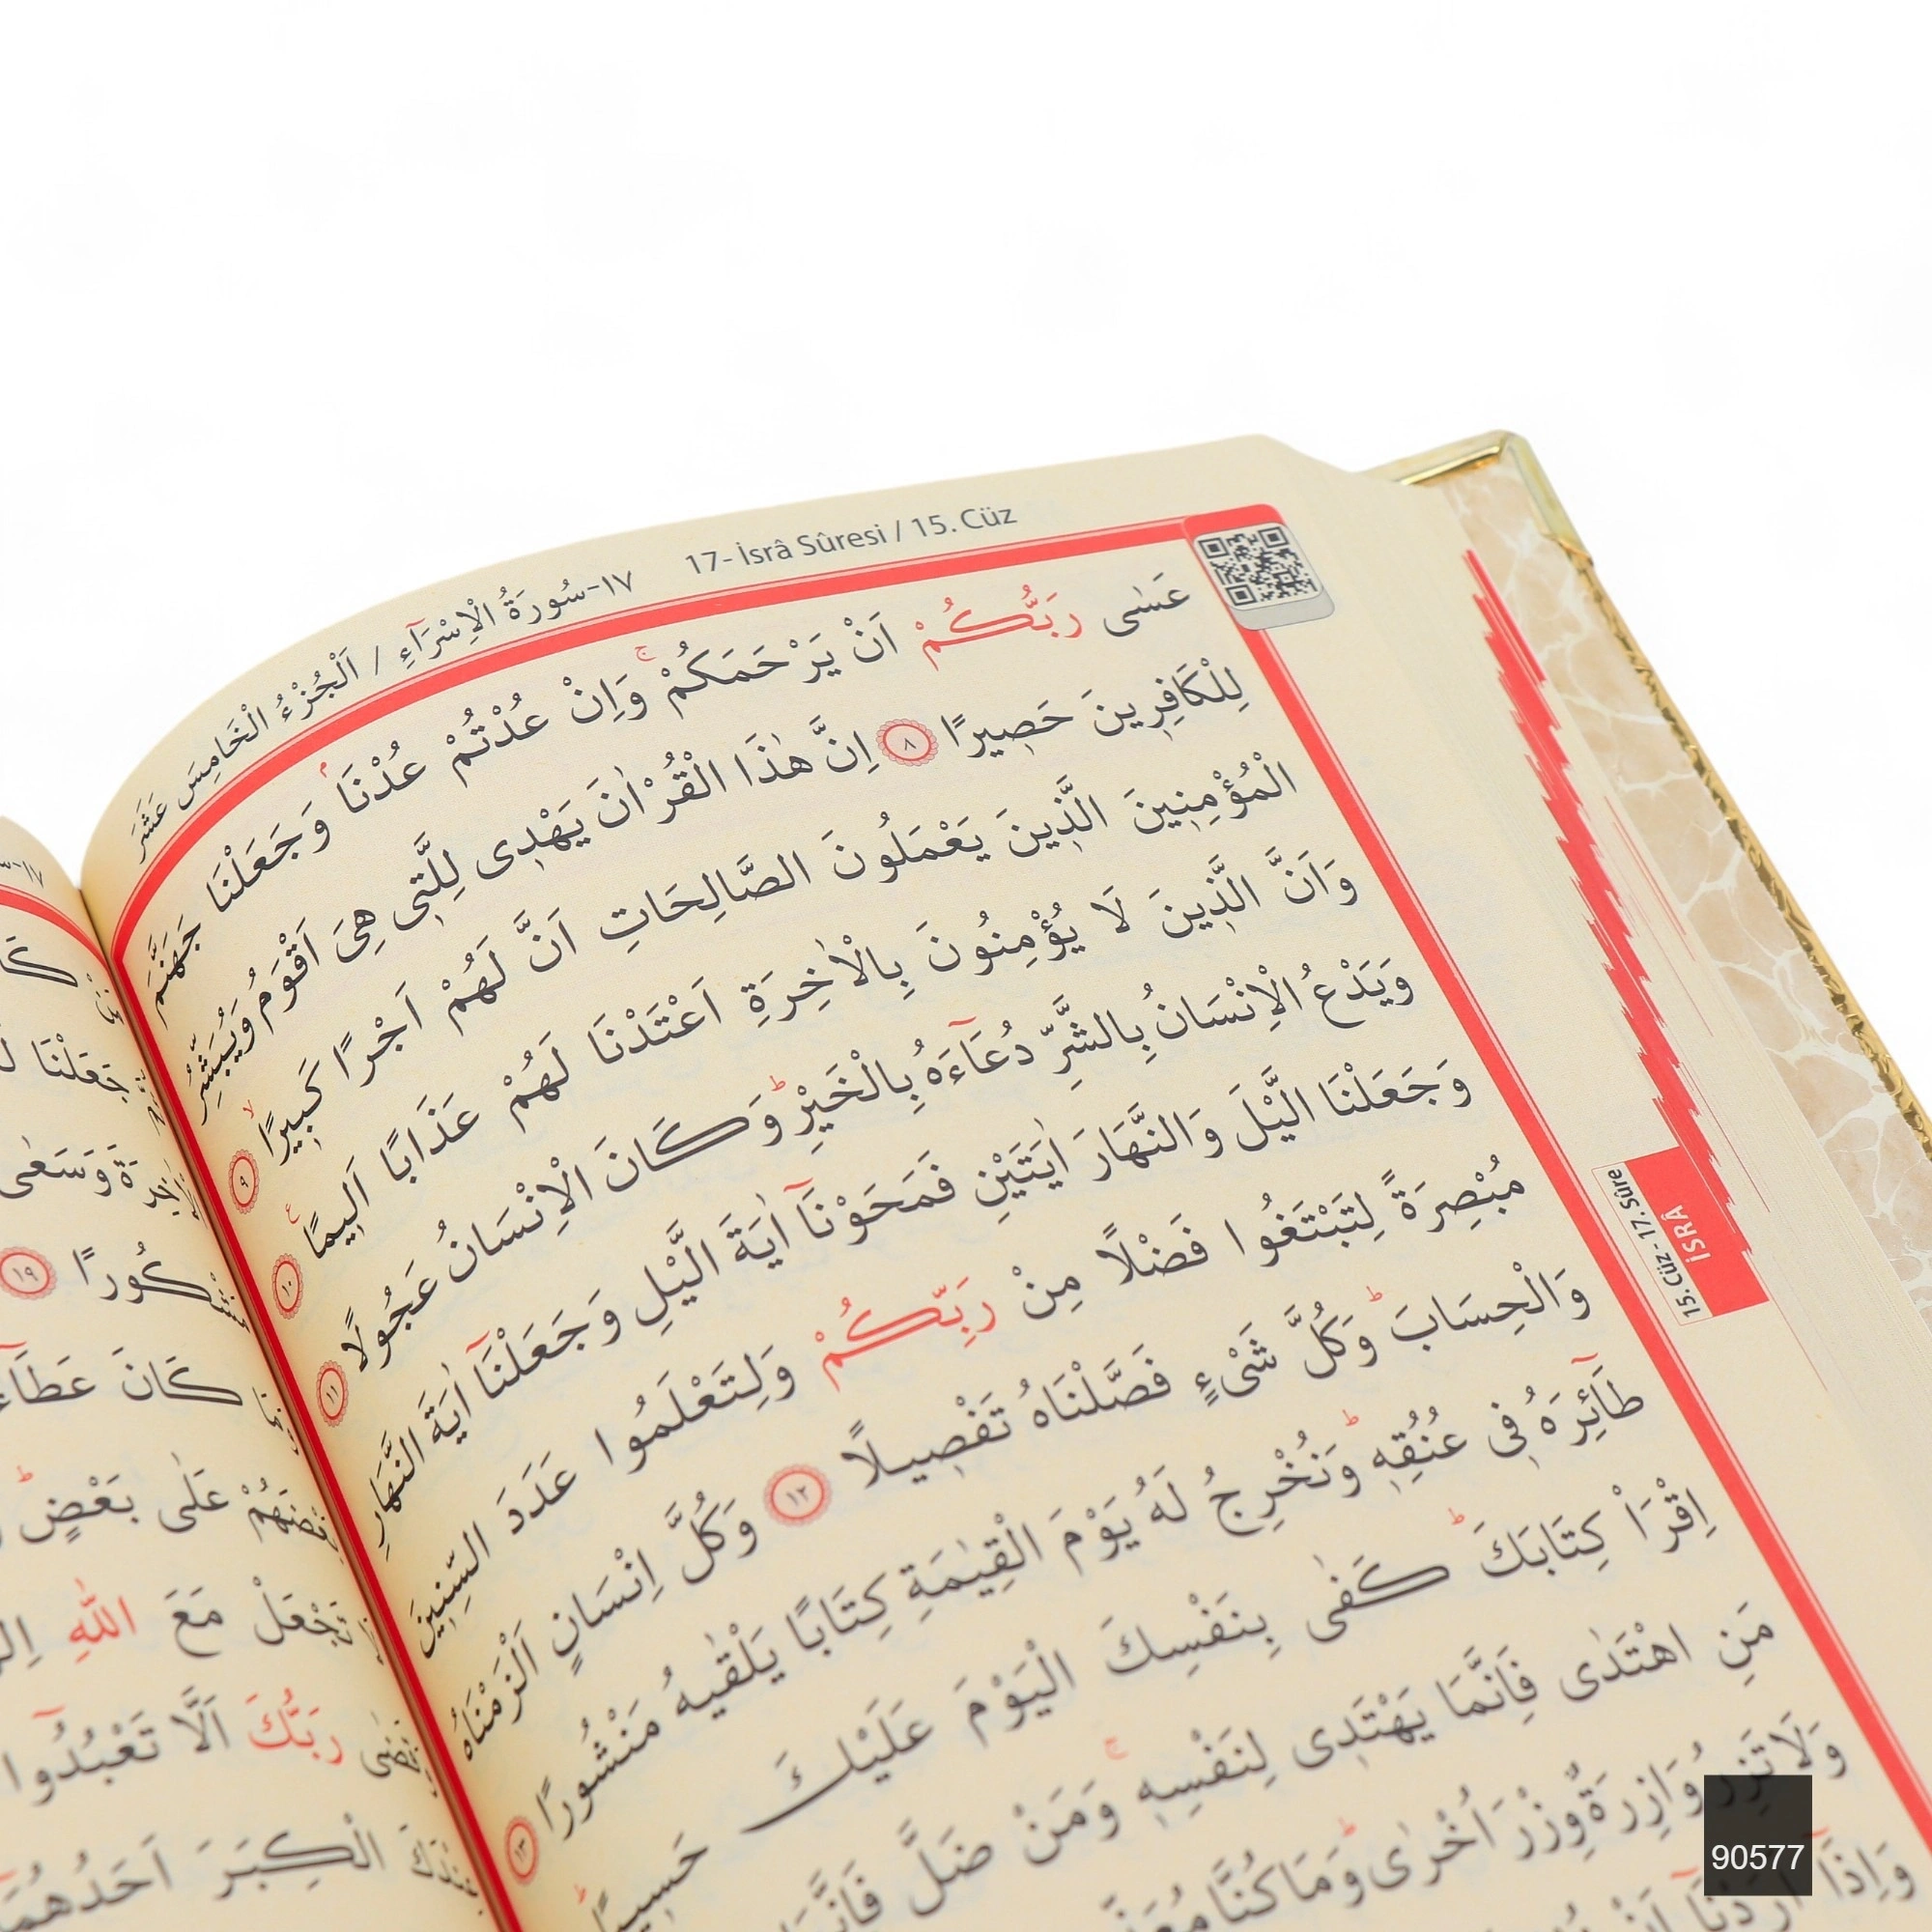 ١٧-سُورَةُ الْاِسْرَآءِ / اَلْجُزْءُ الْخَامِسَ عَشَرَ
17- İsrâ Sûresi / 15. Cüz
عَسٰى رَبُّكُمْ اَنْ يَرْحَمَكُمْۚ وَاِنْ عُدْتُمْ عُدْنَاۢ وَجَعَلْنَا جَهَنَّمَ
لِلْكَافِر۪ينَ حَص۪يرًا ﴿٨﴾ اِنَّ هٰذَا الْقُرْاٰنَ يَهْد۪ى لِلَّت۪ى هِىَ اَقْوَمُ وَيُبَشِّرُ
الْمُؤْمِن۪ينَ الَّذ۪ينَ يَعْمَلُونَ الصَّالِحَاتِ اَنَّ لَهُمْ اَجْرًا كَب۪يرًاۙ ﴿٩﴾
وَاَنَّ الَّذ۪ينَ لَا يُؤْمِنُونَ بِالْاٰخِرَةِ اَعْتَدْنَا لَهُمْ عَذَابًا اَل۪يمًا ﴿١٠﴾
وَيَدْعُ الْاِنْسَانُ بِالشَّرِّ دُعَآءَهُ بِالْخَيْرِۜ وَكَانَ الْاِنْسَانُ عَجُولًا ﴿١١﴾
وَجَعَلْنَا الَّيْلَ وَالنَّهَارَ اٰيَتَيْنِ فَمَحَوْنَآ اٰيَةَ الَّيْلِ وَجَعَلْنَآ اٰيَةَ النَّهَارِ
مُبْصِرَةً لِتَبْتَغُوا فَضْلًا مِنْ رَبِّكُمْ وَلِتَعْلَمُوا عَدَدَ السِّن۪ينَ
وَالْحِسَابَۜ وَكُلَّ شَىْءٍ فَصَّلْنَاهُ تَفْص۪يلًا ﴿١٢﴾ وَكُلَّ اِنْسَانٍ اَلْزَمْنَاهُ
طَآئِرَهُ ف۪ى عُنُقِه۪ۜ وَنُخْرِجُ لَهُ يَوْمَ الْقِيٰمَةِ كِتَابًا يَلْقٰيهُ مَنْشُورًا ﴿١٣﴾
اِقْرَأْ كِتَابَكَۜ كَفٰى بِنَفْسِكَ الْيَوْمَ عَلَيْكَ حَس۪يبًاۜ
مَنِ اهْتَدٰى فَاِنَّمَا يَهْتَد۪ى لِنَفْسِه۪ۚ وَمَنْ ضَلَّ فَاِنَّمَا
وَلَا تَزِرُ وَازِرَةٌ وِزْرَ اُخْرٰىۜ وَمَا كُنَّا
وَاِذَآ اَرَدْنَآ اَنْ
15. Cüz - 17. Sûre
İSRÂ
جَعَلْنَا
وَسَعٰى
﴿١٩﴾
كَانَ عَطَآءُ
عَلٰى بَعْضٍۜ
تَجْعَلْ مَعَ اللّٰهِ
رَبُّكَ اَلَّا تَعْبُدُٓوا
الْكِبَرَ اَحَدُهُمَآ
90577